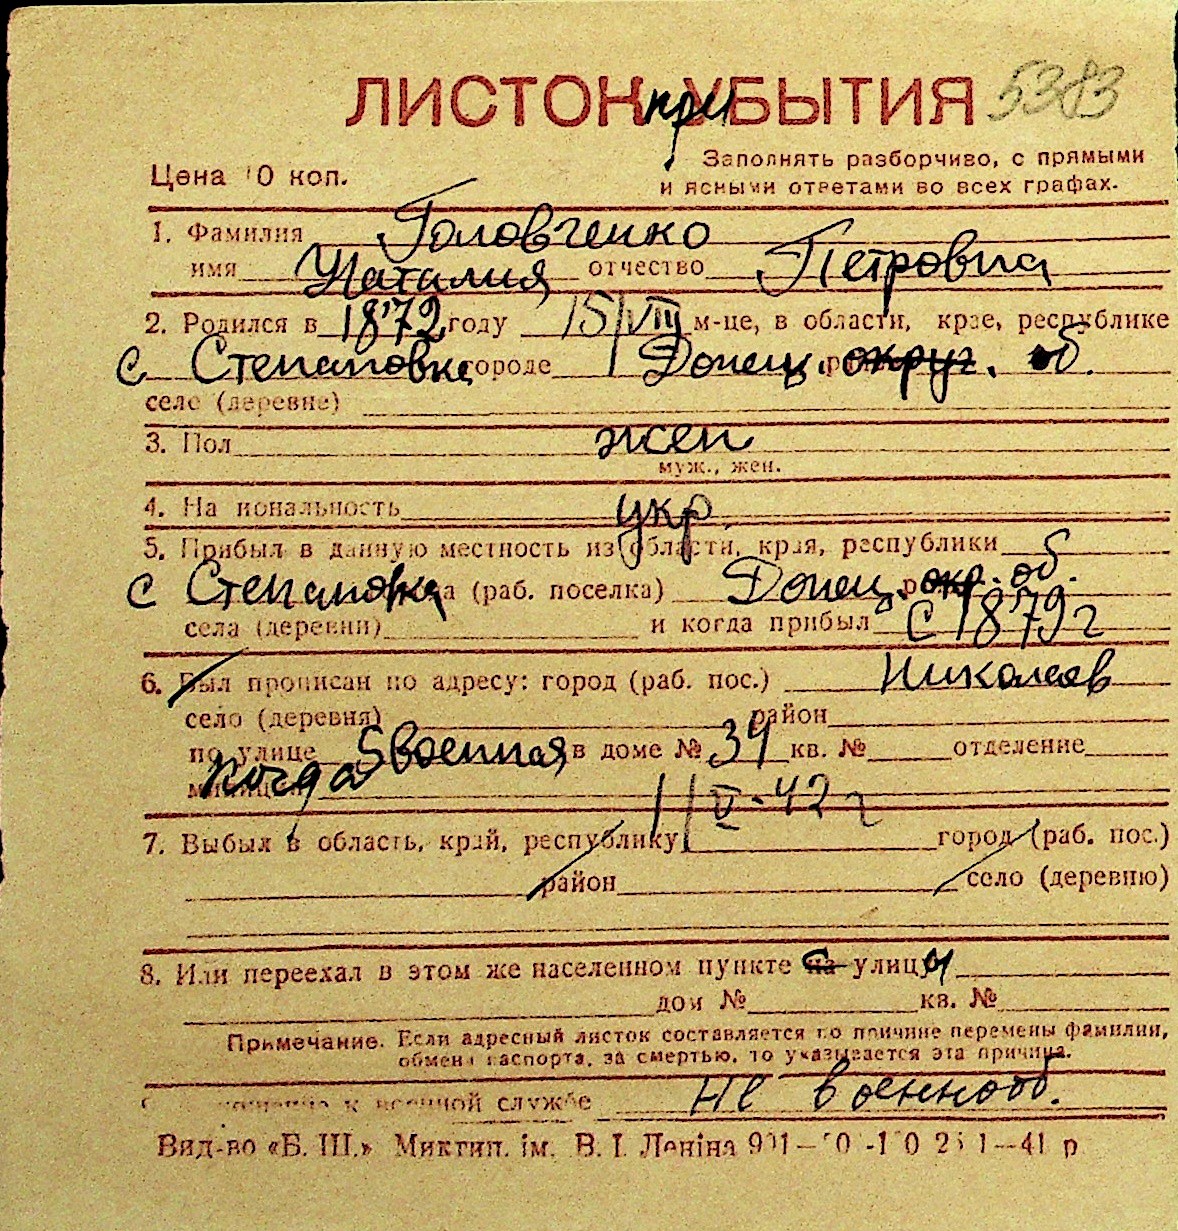 ЛИСТОК приУБЫТИЯ 5383
Цена 10 коп.
Заполнять разборчиво, с прямыми
и ясными ответами во всех графах.
1. Фамилия Головченко
имя Наталия отчество Петровна
2. Родился в 1872 году 15/VIII м-це, в области, крае, республике
с Степановка городе Донец. округ. об.
селе (деревне)
3. Пол жен
муж., жен.
4. Национальность укр.
5. Прибыл в данную местность из области, края, республики
с Степановка (раб. поселка) Донец. окр. об.
села (деревни) и когда прибыл С 1879 г
6. Был прописан по адресу: город (раб. пос.) Николаев
село (деревня) район
по улице 5 военная в доме № 34 кв. № отделение
когда 11/V-42 г
7. Выбыл в область, край, республику город (раб. пос.)
район село (деревню)
8. Или переехал в этом же населенном пункте на с улицы
дом № кв. №
Примечание. Если адресный листок составляется по причине перемены фамилии,
обмена паспорта, за смертью, то указывается эта причина.
к военной службе Не военнооб.
Вид-во «Б. Ш.» Миктип. ім. В. І. Леніна